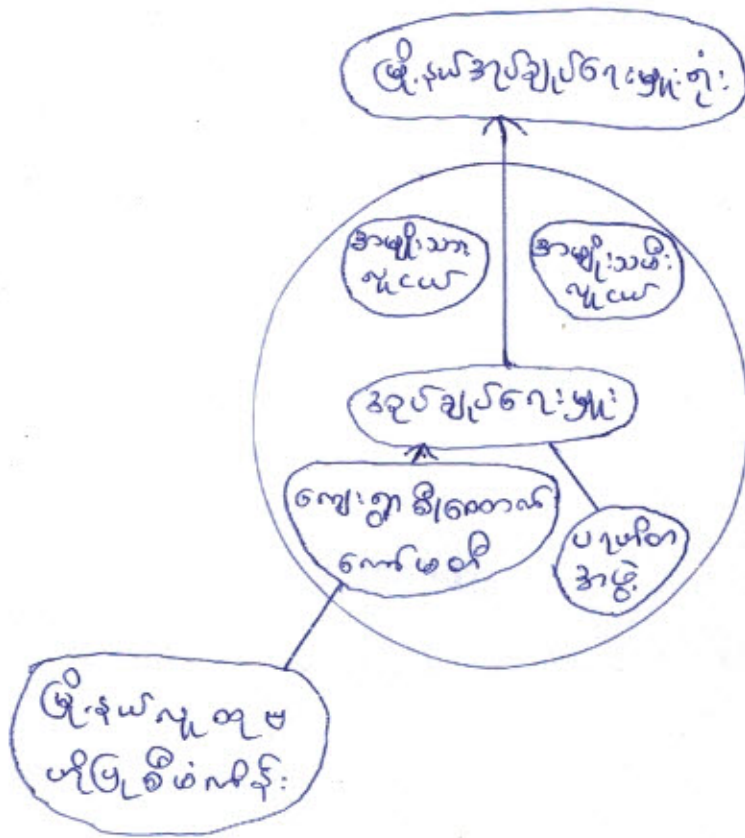 မြို့နယ်အုပ်ချုပ်ရေးမှူးရုံး
အမျိုးသား
လူငယ်
အမျိုးသမီး
လူငယ်
အုပ်ချုပ်ရေးမှူး
ကျေးရွာ စီမံ
ကော်မတီ
ပရဟိတ
အဖွဲ့
မြို့နယ်လူထုဗ
ဟိုပြုစီမံကိန်း